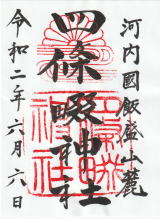 河内國飯盛山麓
四條畷神社
令和二年六月六日